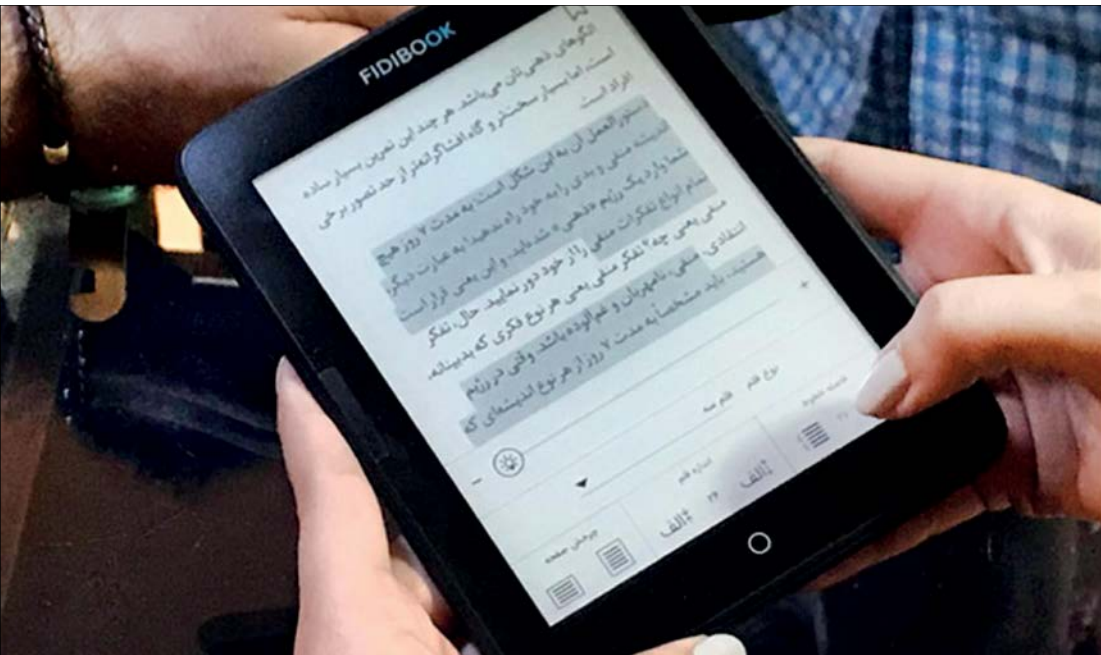 FIDIBOOK
الگوهای ذهنی‌تان می‌باشد. هر چند این تمرین بسیار ساده
است، اما بسیار سخت‌تر و گاه افشاگرانه‌تر از حد تصور برخی
افراد است
دستورالعمل آن به این شکل است: به مدت ۷ روز هیچ
اندیشه منفی و بدی را به خود راه ندهید! به عبارت دیگر،
شما وارد یک رژیم «ذهنی» شده‌اید، و این یعنی قرار است
تمام انواع تفکرات منفی را از خود دور نمایید. حال، تفکر
منفی یعنی چه؟ تفکر منفی یعنی هر نوع فکری که بدبینانه،
انتقادی، منفی، نامهربان و غم‌آلوده باشد. وقتی در رژیم
هستید، باید مشخصاً به مدت ۷ روز از هر نوع اندیشه‌ای که
+
−
نوع قلم قلم سه
اندازه قلم
الف ۲۶ الف
چرخش صفحه